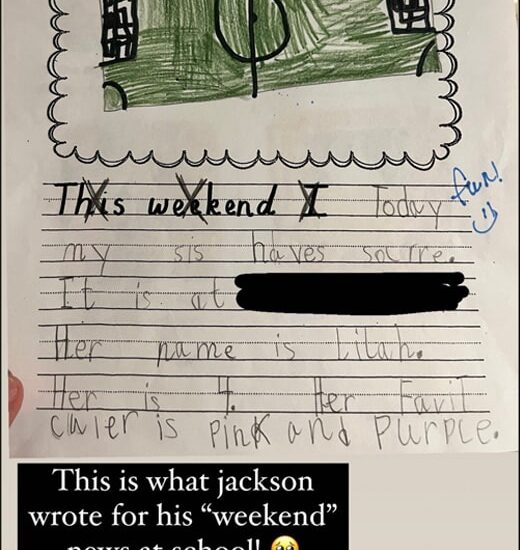 This weekend I Today fun!
my sis haves socrre.
It is at
Her name is Lilah.
Her is 4. Her Favit
cluler is pink and purple.
This is what jackson
wrote for his "weekend"
news at school! 🥹